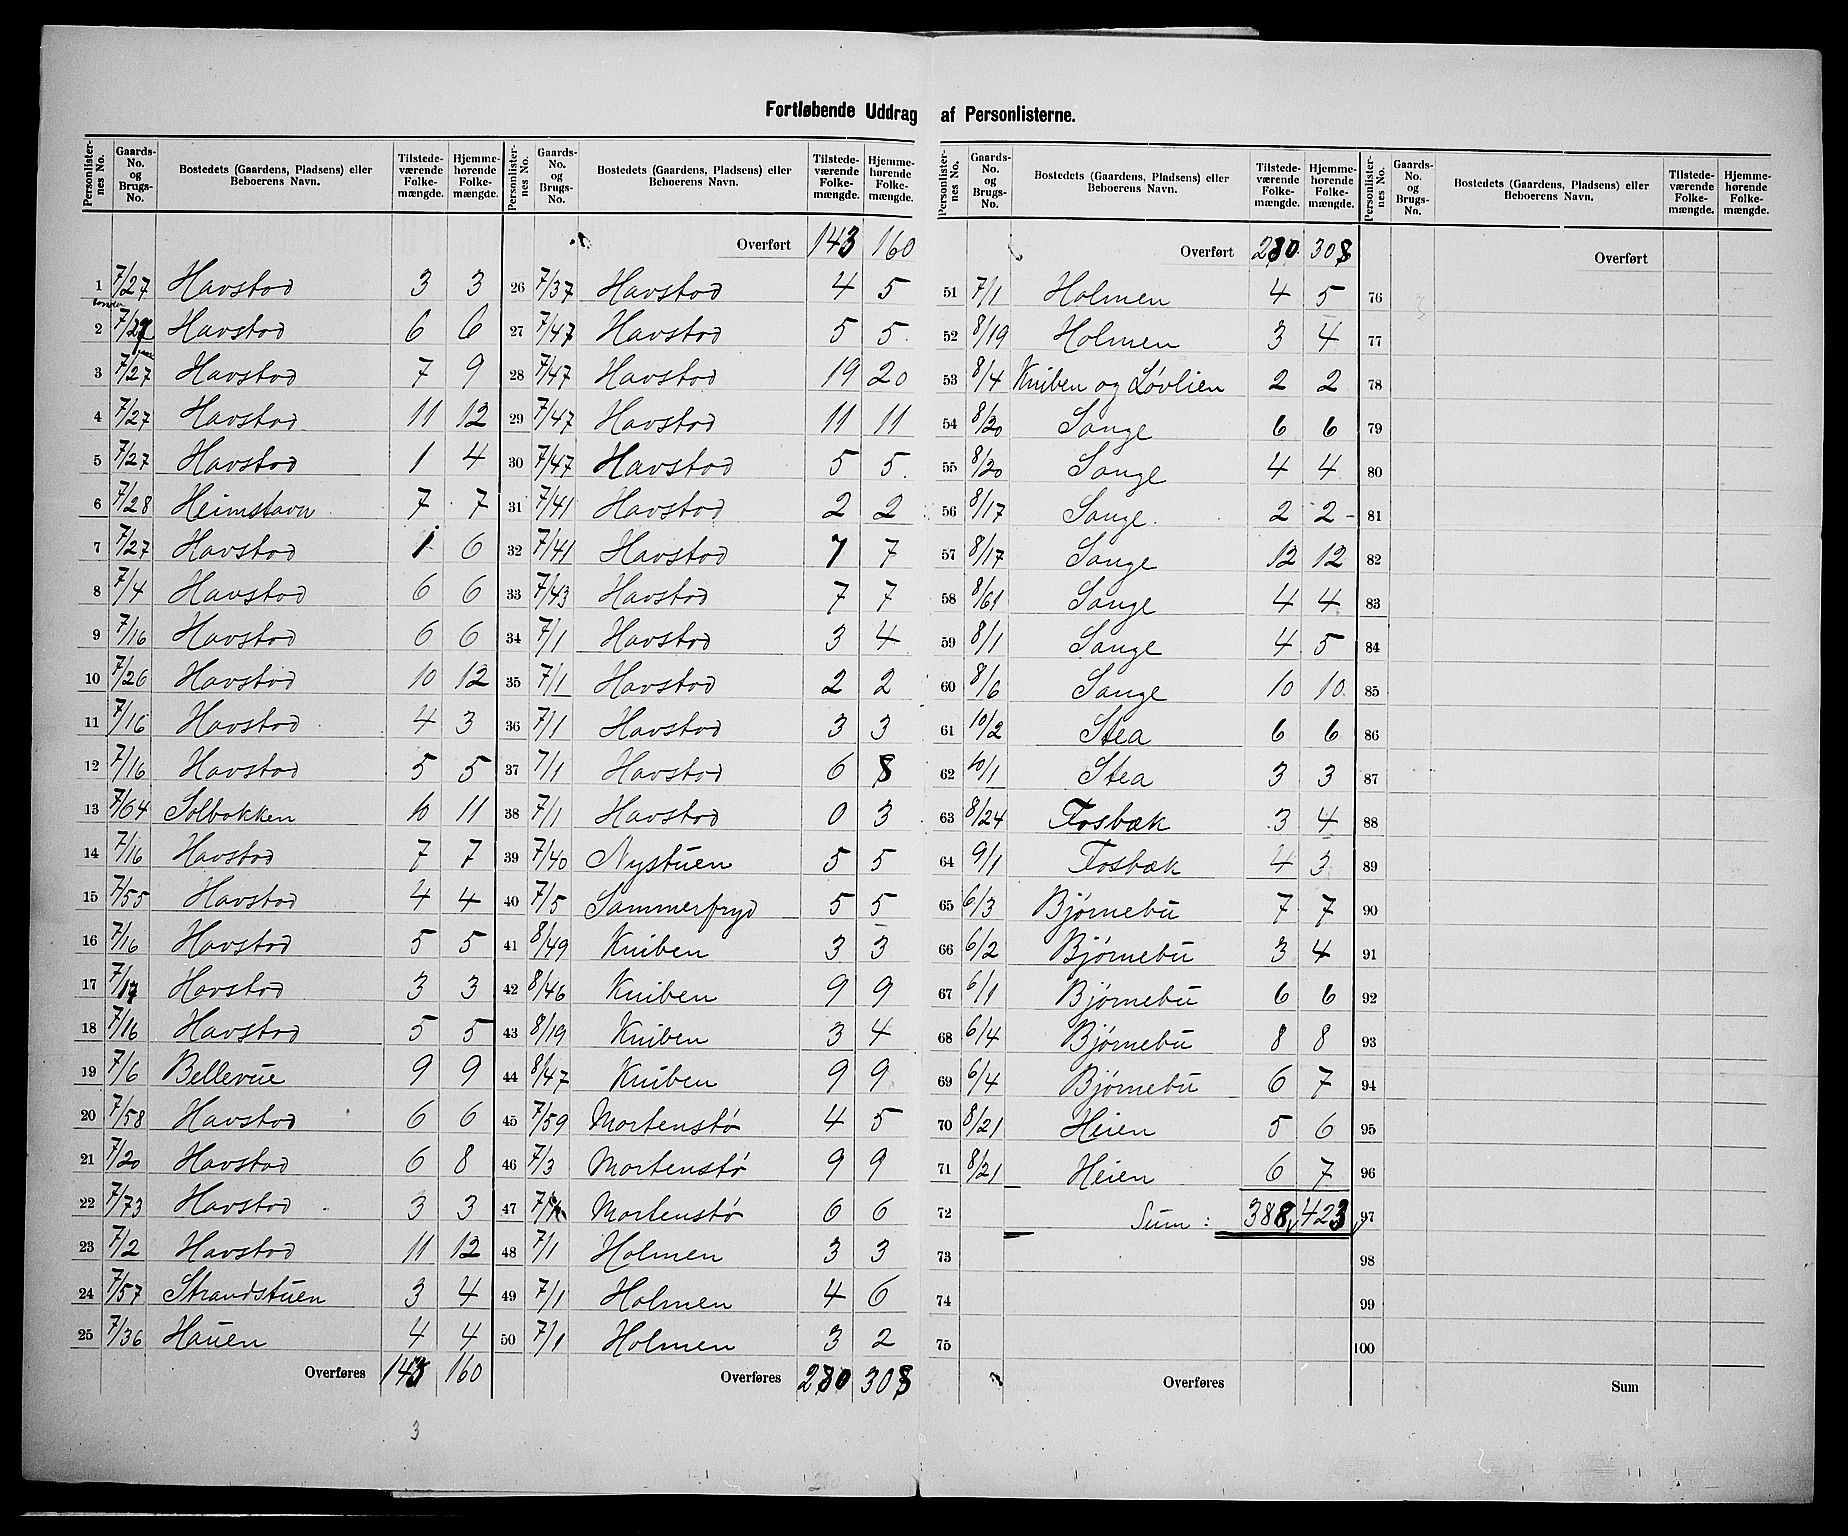 Fortløbende Uddrag af Personlisterne.
Personlister-nes No. | Gaards-No. og Brugs-No. | Bostedets (Gaardens, Pladsens) eller Beboerens Navn. | Tilstede-værende Folke-mængde. | Hjemme-hørende Folke-mængde.
1 7/27 Havstad 3 3
2 7/27 Havstad 6 6
3 7/27 Havstad 7 9
4 7/27 Havstad 11 12
5 7/27 Havstad 1 4
6 7/28 Heimstavn 7 7
7 7/27 Havstad 1 6
8 7/4 Havstad 6 6
9 7/16 Havstad 6 6
10 7/26 Havstad 10 12
11 7/16 Havstad 4 3
12 7/16 Havstad 5 5
13 7/64 Solbakken 10 11
14 7/16 Havstad 7 7
15 7/55 Havstad 4 4
16 7/16 Havstad 5 5
17 7/17 Havstad 3 3
18 7/16 Havstad 5 5
19 7/6 Bellevue 9 9
20 7/58 Havstad 6 6
21 7/20 Havstad 6 8
22 7/73 Havstad 3 3
23 7/2 Havstad 11 12
24 7/57 Strandstuen 3 4
25 7/36 Hauen 4 4
Overføres 143 160
3
Personlister-nes No. | Gaards-No. og Brugs-No. | Bostedets (Gaardens, Pladsens) eller Beboerens Navn. | Tilstede-værende Folke-mængde. | Hjemme-hørende Folke-mængde.
Overført 143 160
26 7/37 Havstad 4 5
27 7/47 Havstad 5 5
28 7/47 Havstad 19 20
29 7/47 Havstad 11 11
30 7/47 Havstad 5 5
31 7/41 Havstad 2 2
32 7/41 Havstad 7 7
33 7/43 Havstad 7 7
34 7/1 Havstad 3 4
35 7/1 Havstad 2 2
36 7/1 Havstad 3 3
37 7/1 Havstad 6 8
38 7/1 Havstad 0 3
39 7/40 Nystuen 5 5
40 7/5 Sammerfryd 5 5
41 8/49 Kniben 3 3
42 8/46 Kniben 9 9
43 8/19 Kniben 3 4
44 8/47 Kniben 9 9
45 7/59 Mortenstø 4 5
46 7/3 Mortenstø 9 9
47 Mortenstø 6 6
48 7/1 Holmen 3 3
49 7/1 Holmen 4 6
50 7/1 Holmen 3 2
Overføres 280 308
Personlister-nes No. | Gaards-No. og Brugs-No. | Bostedets (Gaardens, Pladsens) eller Beboerens Navn. | Tilstede-værende Folke-mængde. | Hjemme-hørende Folke-mængde.
Overført 280 308
51 7/1 Holmen 4 5
52 8/19 Holmen 3 4
53 8/4 Kniben og Løvlien 2 2
54 8/20 Songe 6 6
55 8/20 Songe 4 4
56 8/17 Songe 2 2
57 8/17 Songe 12 12
58 8/61 Songe 4 4
59 8/1 Songe 4 5
60 8/6 Songe 10 10
61 10/2 Stea 6 6
62 10/1 Stea 3 3
63 8/24 Fosbæk 3 4
64 9/1 Fosbæk 4 3
65 6/3 Bjørnebu 7 7
66 6/2 Bjørnebu 3 4
67 6/1 Bjørnebu 6 6
68 6/4 Bjørnebu 8 8
69 6/4 Bjørnebu 6 7
70 8/21 Heien 5 6
71 8/21 Heien 6 7
72 Sum: 388 423
73
74
75
Overføres
Personlister-nes No. | Gaards-No. og Brugs-No. | Bostedets (Gaardens, Pladsens) eller Beboerens Navn. | Tilstede-værende Folke-mængde. | Hjemme-hørende Folke-mængde.
Overført
76
77
78
79
80
81
82
83
84
85
86
87
88
89
90
91
92
93
94
95
96
97
98
99
100
Sum